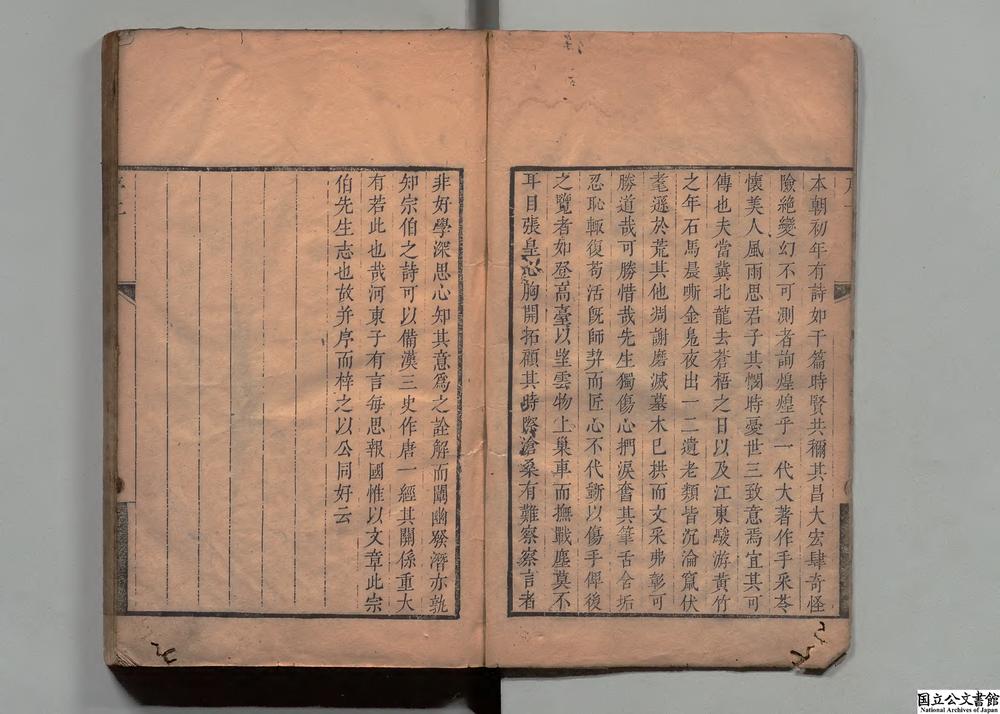 本朝初年有詩如干篇時賢共稱其昌大宏肆奇怪
險絶變幻不可測者詢煌煌乎一代大著作手采苓
懷美人風雨思君子其憫時憂世三致意焉宜其可
傳也夫當冀北龍去蒼梧之日以及江東駿游黃竹
之年石馬晨嘶金鳧夜出一二遺老類皆沉淪竄伏
耄遜於荒其他凋謝磨滅墓木已拱而文采弗彰可
勝道哉可勝惜哉先生獨傷心捫淚奮其筆舌含垢
忍恥輙復苟活既師莽而匠心不代斵以傷手俾後
之覽者如登高臺以望雲物上巢車而撫戰塵莫不
耳目張皇心胸開拓顧其時際滄桑有難察察言者
非好學深思心知其意爲之詮解而闡幽發潛亦孰
知宗伯之詩可以備漢三史作唐一經其關係重大
有若此也哉河東子有言每思報國惟以文章此宗
伯先生志也故并序而梓之以公同好云
国立公文書館
National Archives of Japan